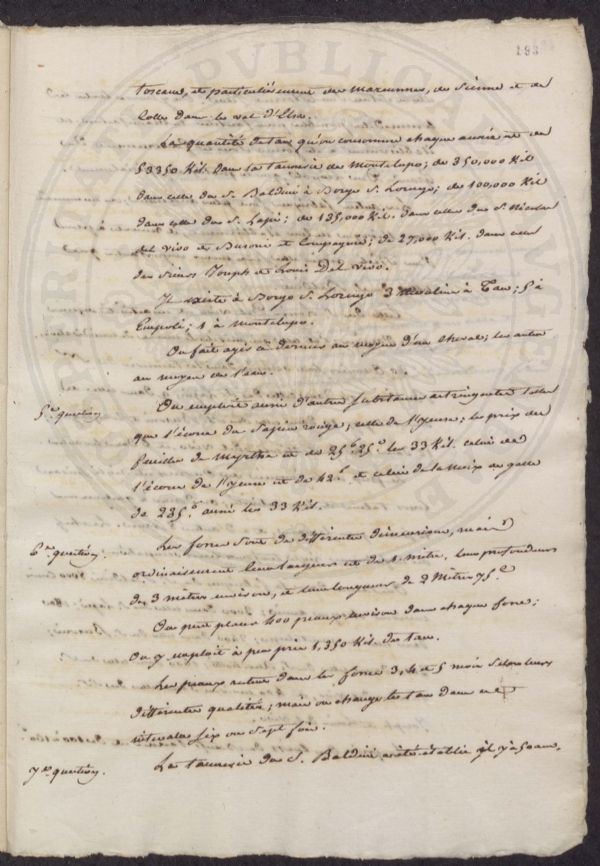 193
toscane, et particulièrement des maremmes, de Sienne et de
Colle dans le val d'Elsa.
La quantité de tan qu'on consomme chaque année est de
53350 Kil. dans la tannerie de Montelupo; de 350,000 Kil
dans celle du S. Baldini à Borgo S. Lorenzo; de 100,000 Kil
dans celle du S. Lapi; de 135,000 Kil. dans celle du S. Nicolas
del Vivo et et Compagnie; de 27,000 Kil. dans celle
des Joseph et Louis Del Vivo.
Il existe à Borgo S. Lorenzo 3 à Tan; 5 à
Empoli; 1 à Montelupo.
On fait agir ce dernier au moyen d'un cheval; les autres
au moyen de l'eau.
5.e question
On emploie aussi d'autres substances astringentes telles
que l'écorce du Sapin rouge, celle de l'yeuse; le prix des
feuilles de Myrthe est de 25.f 25.c les 33 Kil. celui de
l'écorce de l'yeuse est de 42.c et celui de la Noix de galle
de 235.c aussi les 33 Kil.
6.e question
Les fosses sont de différentes dimensions, mais
ordinairement leur largeur est de 1 mètre, leur profondeur
de 3 mètres environ, et leur longueur de 2 Mètres 75.c
On peut placer 400 peaux environ dans chaque fosse;
On y emploit à peu près 1,350 Kil. de tan.
Les peaux restent dans les fosses 3, 4 et 5 mois selon leurs
différentes qualités; mais on change le tan dans cet
intervalle six ou sept fois.
7.e question
La tannerie du S. Baldini a été établie il y a 50 ans.